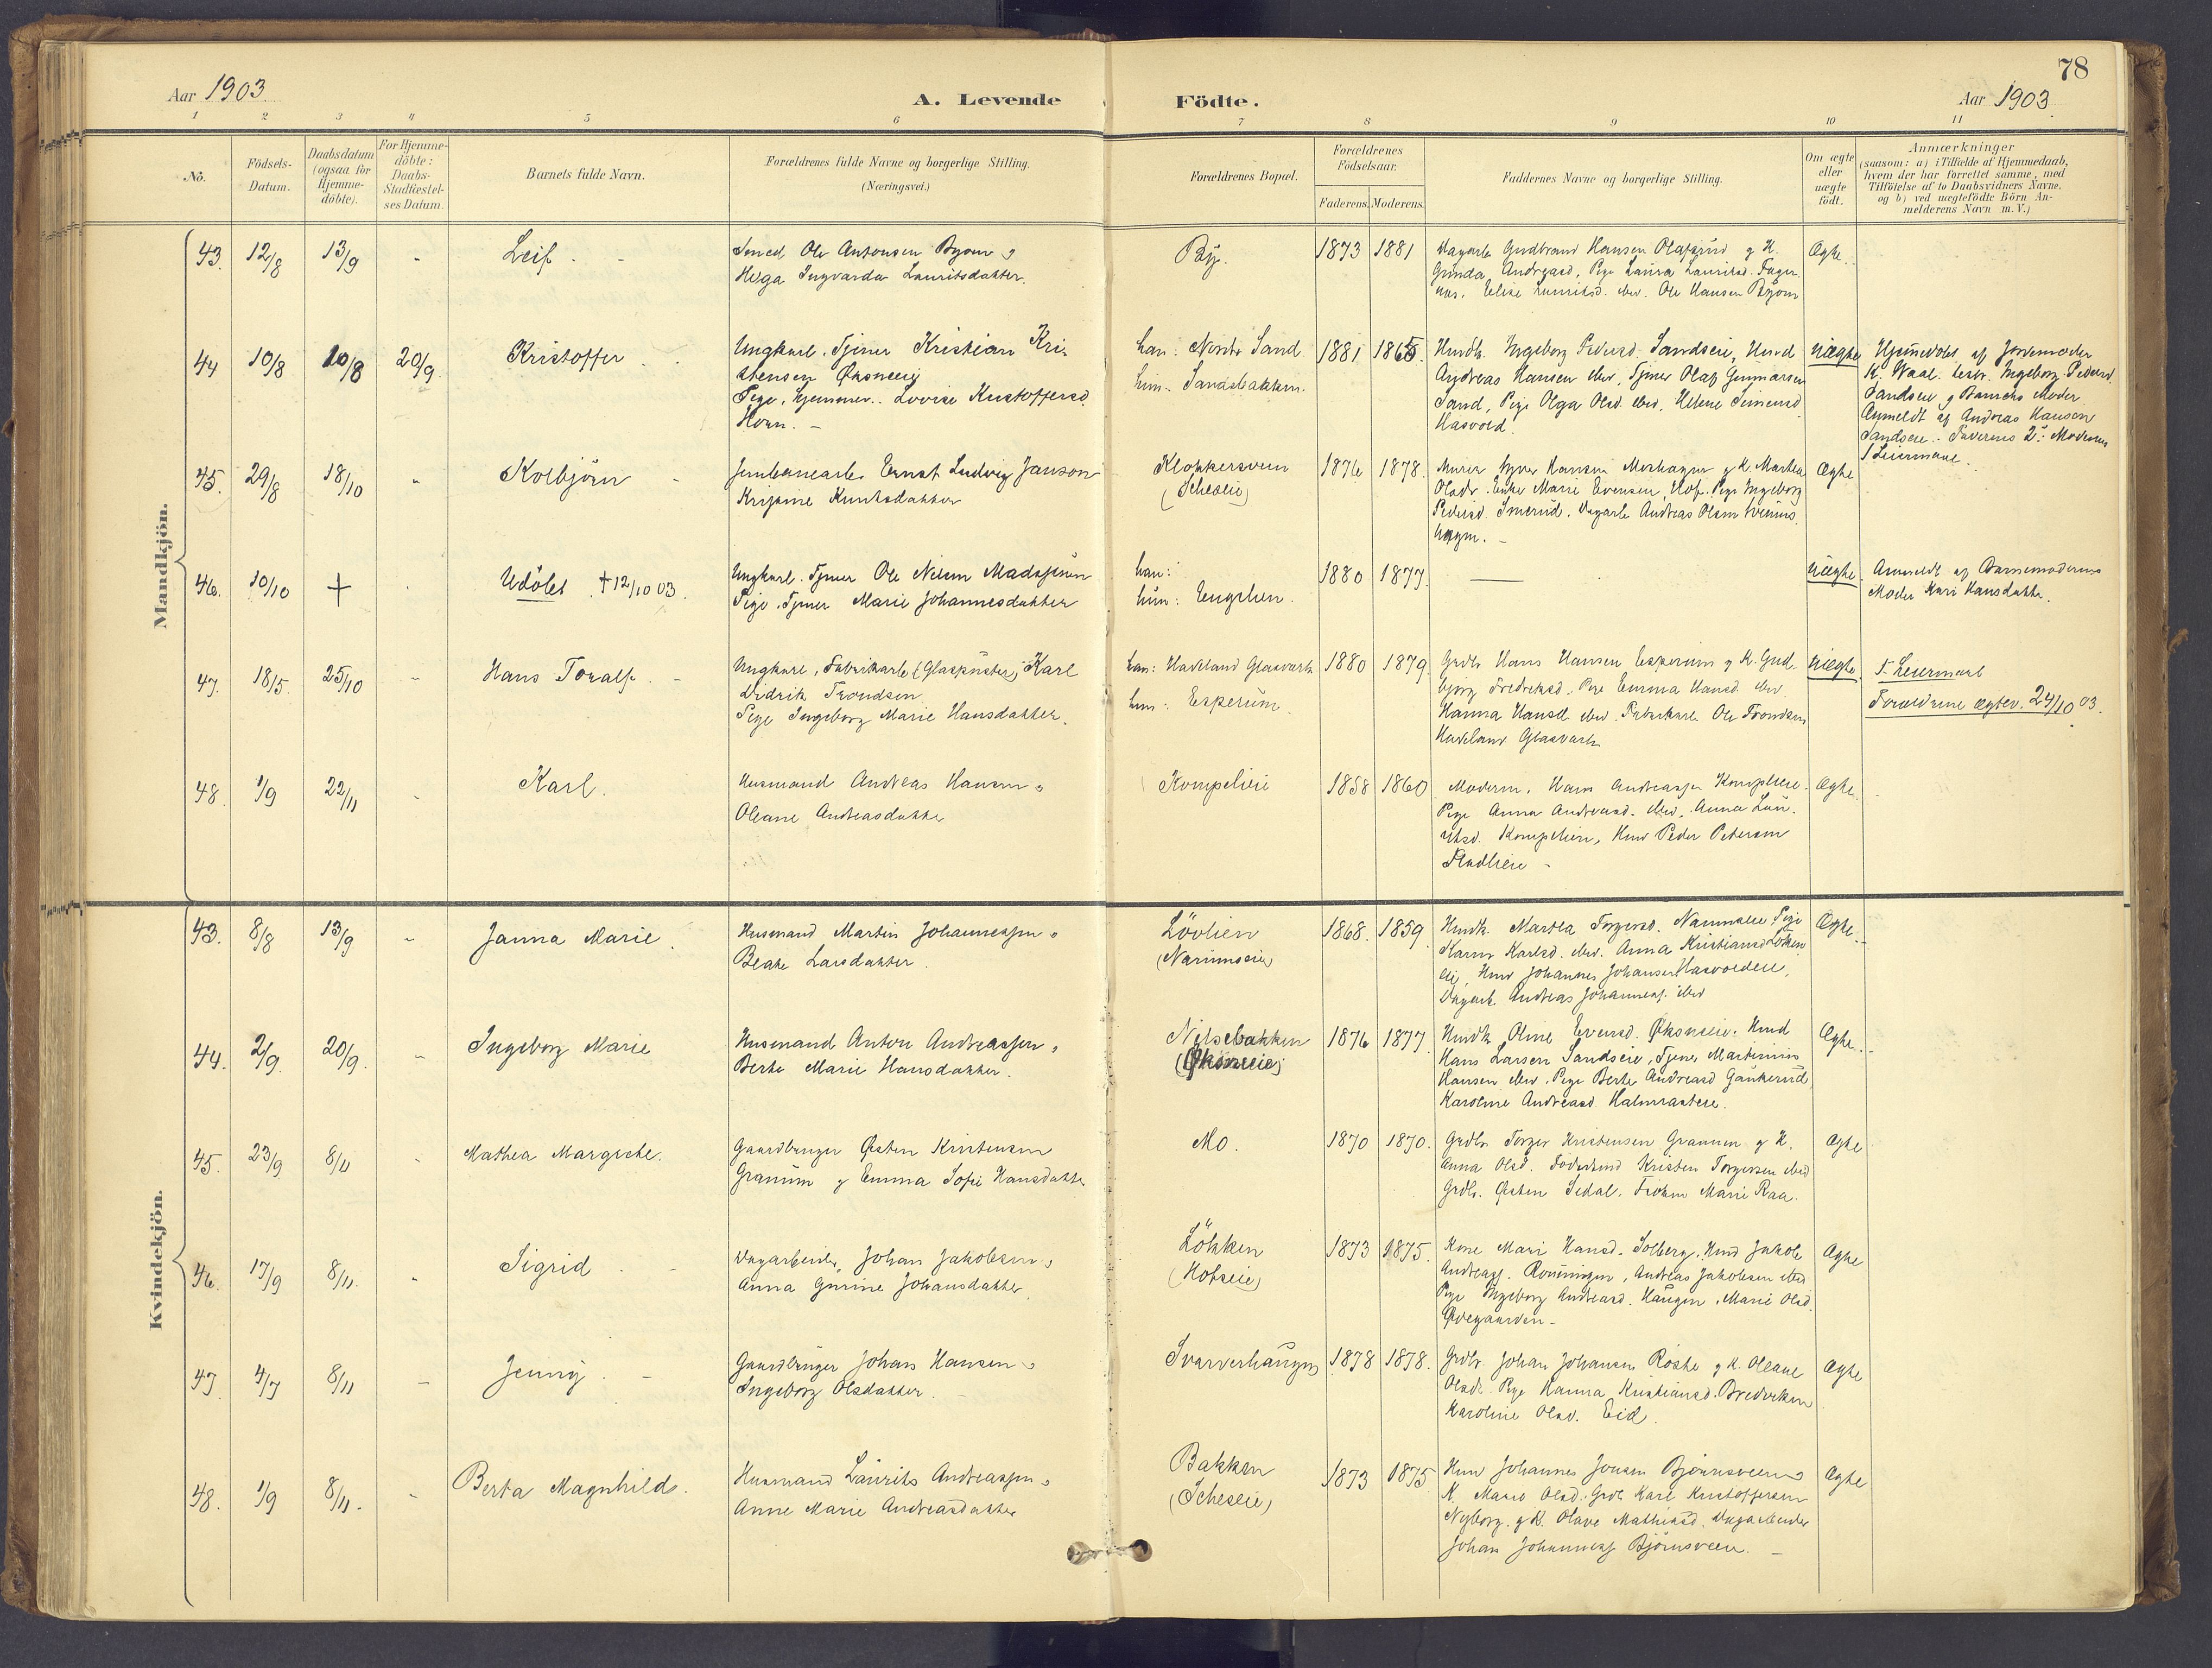 78
Aar 1903
A. Levende Födte.
Aar 1903
1 2 3 4 5 6 7 8 9 10 11
No.
Födsels-
Datum.
Daabsdatum
(ogsaa for
Hjemme-
döbte).
For Hjemme-
döbte:
Daabs-
Stadfæstel-
ses Datum.
Barnets fulde Navn.
Forældrenes fulde Navne og borgerlige Stilling.
(Næringsvei.)
Forældrenes Bopæl.
Forældrenes
Födselsaar.
Faderens. Moderens.
Faddernes Navne og borgerlige Stilling.
Om ægte
eller
uægte
födt.
Anmærkninger
(saasom: a) i Tilfælde af Hjemmedaab,
hvem der har forrettet samme, med
Tilföielse af to Daabsvidners Navne.
og b) ved uægtefödte Börn An-
melderens Navn m. V.)
Mandkjön.
43. 12/8 13/9 - Leif.
Smed Ole Antonsen Byom
Helga Ingvarda Lauritsdatter.
By. 1873 1881
Dagarb. Gudbrand Hansen Olafsrud g K.
Gunda Andreasd. Pige Laura Lauritsd. Fager
Elise Lauritsd. ibid. Ole Hansen Byom
Ægte.
44 10/8 10/8 20/9 Kristoffer
Ungkarl. Tjener Kristian Kri-
stensen Øksneeie
Pige, hjemmev. Lovise Kristoffersd.
Horn. -
han: Nordre Sand
hun: Sandsbakken.
1881 1865.
Husmk. Ingeborg Pedersd. Sandseie, Husmd
Andreas Hansen ibid, Tjener Olaf Gunnarsen
Sand, Pige Olga Olsd. ibid, Helene Simensd
Hasvold.
Uægte
Hjemmedöbt af Jordemoder
K. Waal. test. Ingeborg Pedersd.
Sandseie g Barnets Moder
Anmeldt af Andreas Hansen
Sandseie. Faderens 2. Moderens
1 Leiermaal.
45. 29/8 18/10 - Kolbjörn
Jernbanearb. Ernst Ludvig Janson
Kristine Knutsdatter
Klokkersveen
(Scheseie)
1876 1878.
Murer Hansen g K. Marthea
Olsdr. Enke Marie Evensen, Hof. Pige Ingeborg
Pedersd. Smerud, Dagarb. Andreas Olsen
Ægte
46. 10/10 † Udöbt †12/10 03.
Ungkarl. Tjener Ole Nilsen
Pige. Tjener Marie Johannesdatter
han:
hun: Engelien.
1880 1877.
Uægte
Anmeldt af Barnemoderens
Moder Kari Hansdatter.
47. 18/5. 25/10 - Hans Toralf. -
Ungkarl, Fabrikarb. (Glaspuster) Karl
Didrik Trondsen
Pige Ingeborg Marie Hansdatter.
han: Hadeland Glasværk
hun: Esperum.
1880 1879.
Grdbr. Hans Hansen Esperum g K. Gud-
björg Fredriksd. Pige Emma Hansd. ibid.
Hanna Hansd. ibid. Fabrikarb. Ole Trondsen
Hadeland Glasværk
Uægte
1ste Leiermaal
Forældrene ægtev. 24/10 03.
48. 1/9 22/11 - Karl.
Husmand Andreas Hansen
Oleane Andreasdatter
Kompelien 1858 1860
Moderen. Hans Andreassen Kompelien.
Pige Anna Andreasd. ibid. Anna Lau-
ritsd. Kompelien, Husmd Peder Pedersen
Ægte.
Kvindekjön.
43. 8/8 13/9 - Janna Marie.
Husmand Martin Johannessen
Beate Larsdatter
Lövlien
(Narumseie)
1868. 1859.
Husmk. Marthea Torgersd. Narumseie Pige
Karen Karlsd. ibid. Anna Kristiansd. Löken-
eie, Husmd Johannes Johansen Hasvoldeie,
Dagarb. Andreas Johannesf. ibid
Ægte.
44. 2/9. 20/9. - Ingeborg Marie
Husmand Anton Andreassen
Berte Marie Hansdatter.
Nilsebakken
(Øksneeie)
1876 1877.
Husmk. Oline Evensd. Øksneeie. Husmd
Hans Larsen Sandseie, Tjener Martinius
Hansen ibid. Pige Berte Andreasd Gaukerud
Karoline Andreasd.
Ægte.
45. 23/9 8/11 - Mathea Margrethe.
Gaardbruger Østen Kristensen
Granum g Emma Sofie Hansdatter
Mo. 1870 1870.
Grdbr. Torger Kristensen Granum g K.
Anna Olsd. Kristen Torgersen ibid
Grdbr. Østen Sedal. Marie Raa.
Ægte
46. 17/9 8/11. - Sigrid
Dagarbeider Johan Jakobsen
Anna Gurine Johansdatter.
Lökken
(Hofseie)
1873 1875.
Kone Mari Hansd. Solberg. Husmd Jakob
Andreasf. Rönningen, Andreas Jakobsen ibid
Pige Ingeborg Andreasd. Haugen. Marie Olsd.
Ødegaarden -
Ægte
47. 4/7 8/11 - Jenny. -
Gaardbruger Johan Hansen
Ingeborg Olsdatter.
Svarverhaugen 1878 1878.
Grdbr. Johan Johansen g K. Oleane
Olsdr. Pige Hanna Kristiansd. Bredviken
Karoline Olsd. Eid.
Ægte
48. 1/9 8/11. - Berta Magnhild.
Husmand Laurits Andreassen
Anne Marie Andreasdatter
Bakken
(Scheseie)
1873 1875
Husmd Johannes Jonsen Björnsveen g
K. Marie Olsd. Grdbr. Karl Kristoffersen
Nyborg. g K. Olave Mathiasd. Dagarbeider
Johan Johannesf Björnsveen. -
Ægte